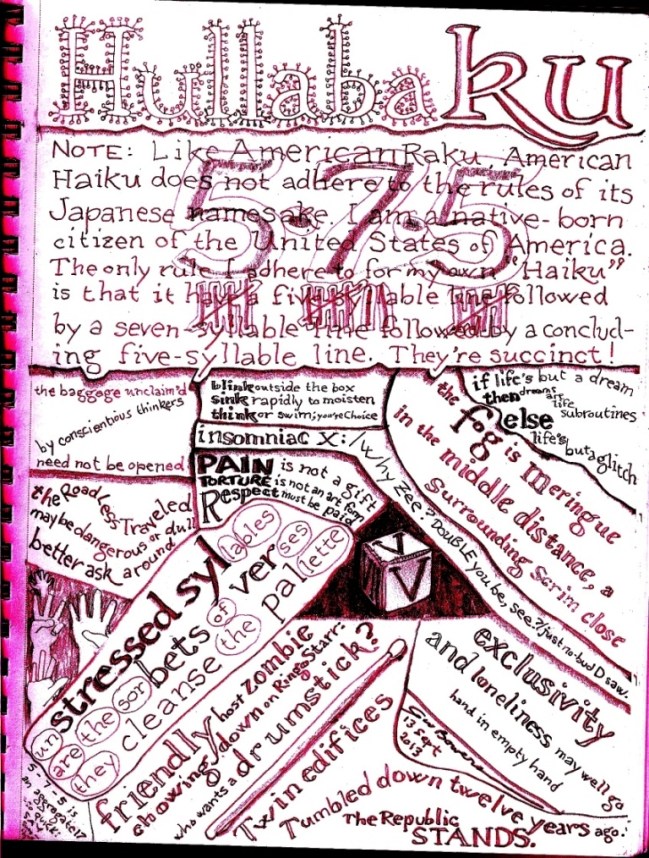 HullabaKU
5-7-5
NOTE: Like American Raku, American
Haiku does not adhere to the rules of its
Japanese namesake. I am a native-born
citizen of the United States of America.
The only rule I adhere to for my own "Haiku"
is that it have a five-syllable line followed
by a seven-syllable line followed by a conclud-
ing five-syllable line. They're succinct!
the baggage unclaim'd
by conscientious thinkers
need not be opened
blink outside the box
sink rapidly to moisten
think or swim; you're Choice
if life's but a dream
then dreams are life subroutines
else life's but a glitch
insomniac X: / Why Zee? DOUBLE you be, see? / just no-bud D saw.
the fog is Meringue
in the middle distance, a
Surrounding Scrim close
PAIN is not a gift
TORTURE is not an art form
Respect must be paid
the Road Less Traveled
may be dangerous or dull
better ask around
V
V
unstressed syllables
are the sorbets of verses
they cleanse the pallette
friendly host zombie
chowing down on Ringo Starr:
who wants a drumstick?
exclusivity
and loneliness may well go
hand in empty hand
13 Sept
2013
Twin edifices
Tumbled down twelve years ago.
The Republic STANDS.
5-7-5 is
an aggregate 17